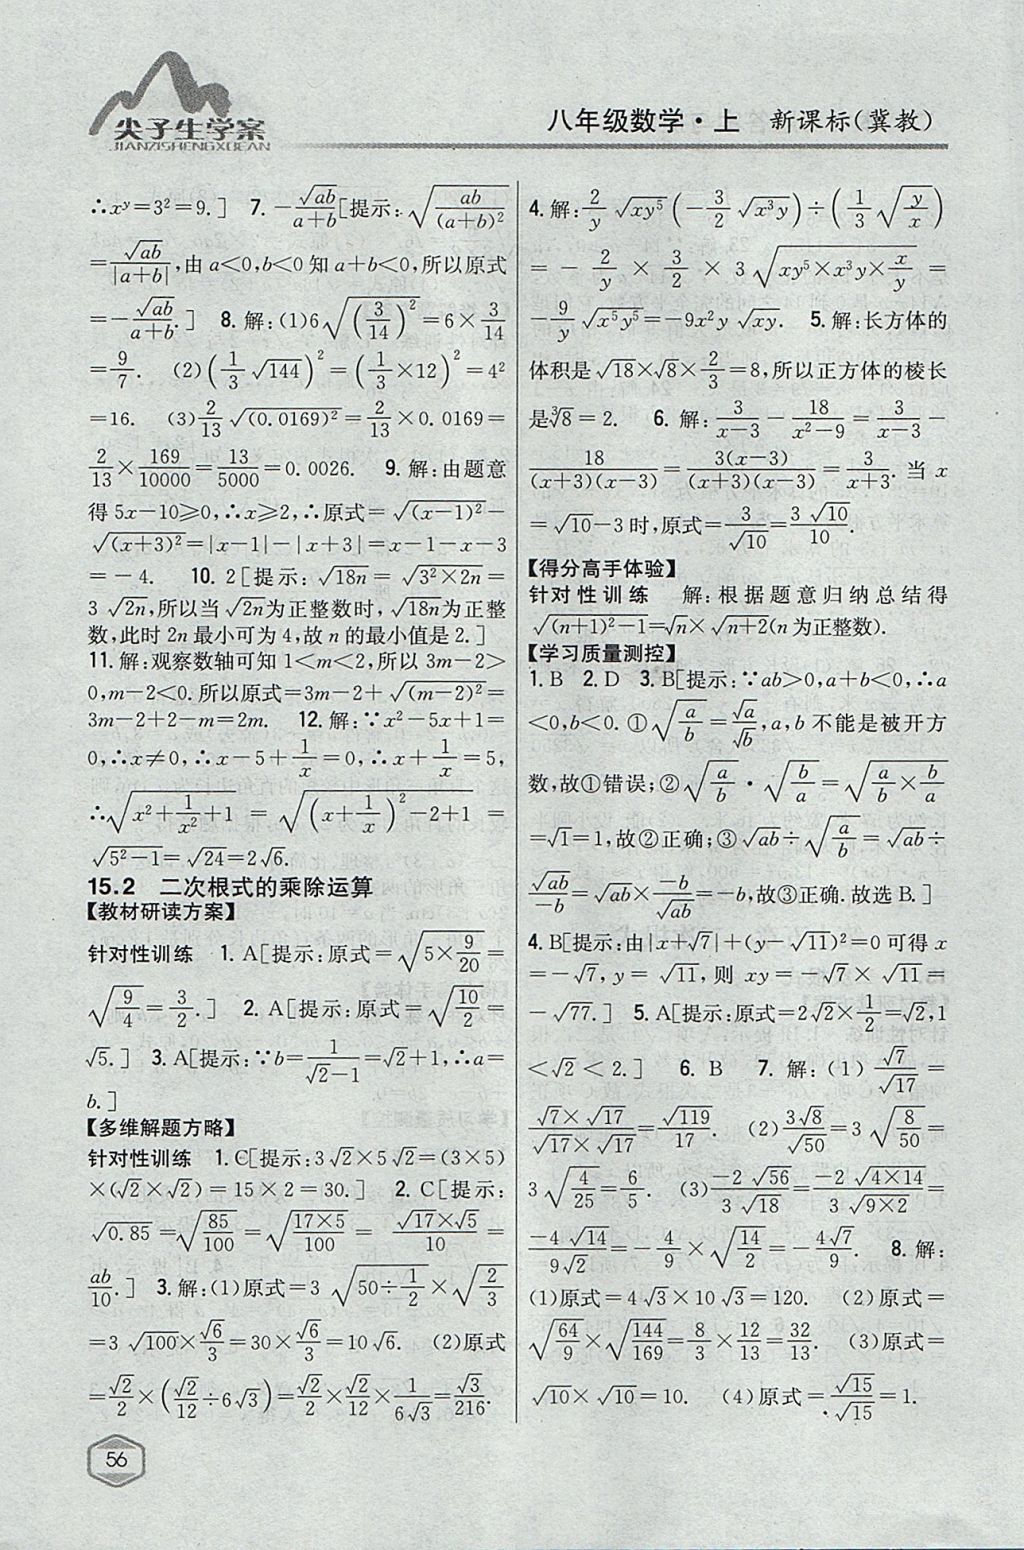 尖子生学案
JIANZISHENGXUEAN
八年级数学·上 新课标(冀教)
∴x^y=3²=9.] 7.-√ab/(a+b)[提示:√(ab/(a+b)²)
=√ab/|a+b|,由a<0,b<0知a+b<0,所以原式
=-√ab/(a+b).] 8.解:(1)6√((3/14)²)=6×3/14
=9/7. (2)(1/3√144)²=(1/3×12)²=4²
=16. (3)2/13√((0.0169)²)=2/13×0.0169=
2/13×169/10000=13/5000=0.0026. 9.解:由题意
得5x-10≥0,∴x≥2,∴原式=√((x-1)²)-
√((x+3)²)=|x-1|-|x+3|=x-1-x-3
=-4. 10. 2[提示:√(18n)=√(3²×2n)=
3√(2n),所以当√(2n)为正整数时,√(18n)为正整
数,此时2n最小可为4,故n的最小值是2.]
11.解:观察数轴可知1<m<2,所以3m-2>
0,m-2<0.所以原式=3m-2+√((m-2)²)=
3m-2+2-m=2m. 12.解:∵x²-5x+1=
0,∴x≠0,∴x-5+1/x=0,∴x+1/x=5,
∴√(x²+1/x²+1)=√((x+1/x)²-2+1)=
√(5²-1)=√24=2√6.
15.2 二次根式的乘除运算
【教材研读方案】
针对性训练 1. A[提示:原式=√(5×9/20)=
√(9/4)=3/2.] 2. A[提示:原式=√(10/2)=
√5.] 3. A[提示:∵b=1/(√2-1)=√2+1,∴a=
b.]
【多维解题方略】
针对性训练 1. C[提示:3√2×5√2=(3×5)
×(√2×√2)=15×2=30.] 2. C[提示:
√0.85=√(85/100)=√((17×5)/100)=(√17×√5)/10=
ab/10.] 3.解:(1)原式=3√(50÷1/2)×√(2/3)
=3√100×√6/3=30×√6/3=10√6. (2)原式
=√2/2×(√2/12÷6√3)=√2/2×√2/12×1/(6√3)=√3/216.
4.解:2/y√(xy⁵)(-3/2√(x³y))÷(1/3√(y/x))
=-2/y×3/2×3√(xy⁵×x³y×x/y)=
-9/y√(x⁵y⁵)=-9x²y√(xy). 5.解:长方体的
体积是√18×√8×2/3=8,所以正方体的棱长
是∛8=2. 6.解:3/(x-3)-18/(x²-9)=3/(x-3)-
18/((x+3)(x-3))=3(x-3)/((x+3)(x-3))=3/(x+3).当x
=√10-3时,原式=3/√10=3√10/10.
【得分高手体验】
针对性训练 解:根据题意归纳总结得
√((n+1)²-1)=√n×√(n+2)(n为正整数).
【学习质量测控】
1. B 2. D 3. B[提示:∵ab>0,a+b<0,∴a
<0,b<0. ①√(a/b)=√a/√b,a,b不能是被开方
数,故①错误;②√(a/b)·√(b/a)=√(a/b×b/a)
=√1=1,故②正确;③√ab÷√(a/b)=√ab÷
√ab/-b=√ab×-b/√ab=-b,故③正确.故选B.]
4. B[提示:由|x+√7|+(y-√11)²=0可得x
=-√7,y=√11,则xy=-√7×√11=
-√77.] 5. A[提示:原式=2√2×1/2=√2,1
<√2<2.] 6. B 7.解:(1)√7/√17=
(√7×√17)/(√17×√17)=√119/17. (2)3√8/√50=3√(8/50)=
3√(4/25)=6/5. (3)-2√56/(3√18)=-2√(4×14)/(3√(9×2))=
-4√14/(9√2)=-4/9×√(14/2)=-4√7/9. 8.解:
(1)原式=4√3×10√3=120. (2)原式=
√(64/9)×√(144/169)=8/3×12/13=32/13. (3)原式=
√10×√10=10. (4)原式=√15/√15=1.
56